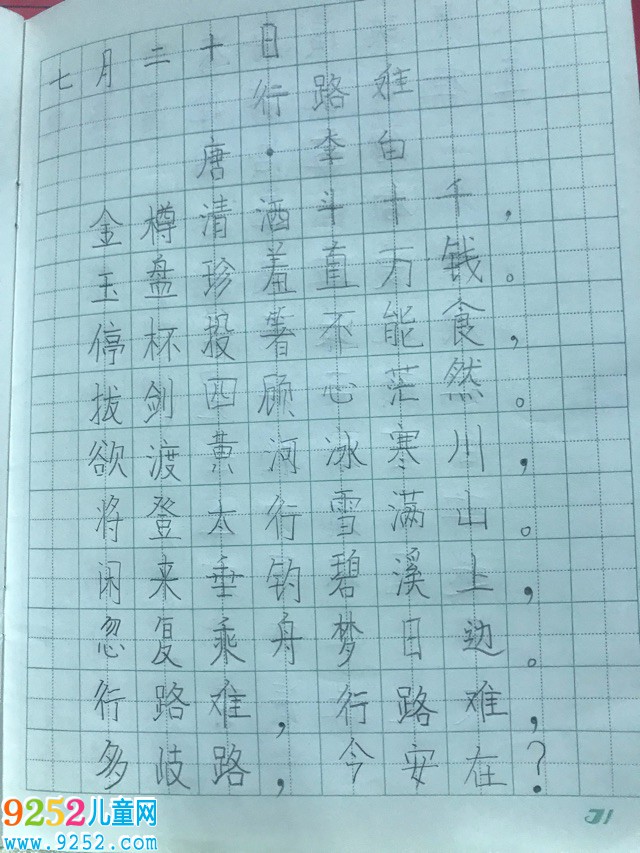 七月二十日
行路难
唐·李白
金樽清酒斗十千，
玉盘珍羞直万钱。
停杯投箸不能食，
拔剑四顾心茫然。
欲渡黄河冰寒川，
将登太行雪满山。
闲来垂钓碧溪上，
忽复乘舟梦日边。
行路难，行路难，
多歧路，今安在？
71
9252儿童网
www.9252.com